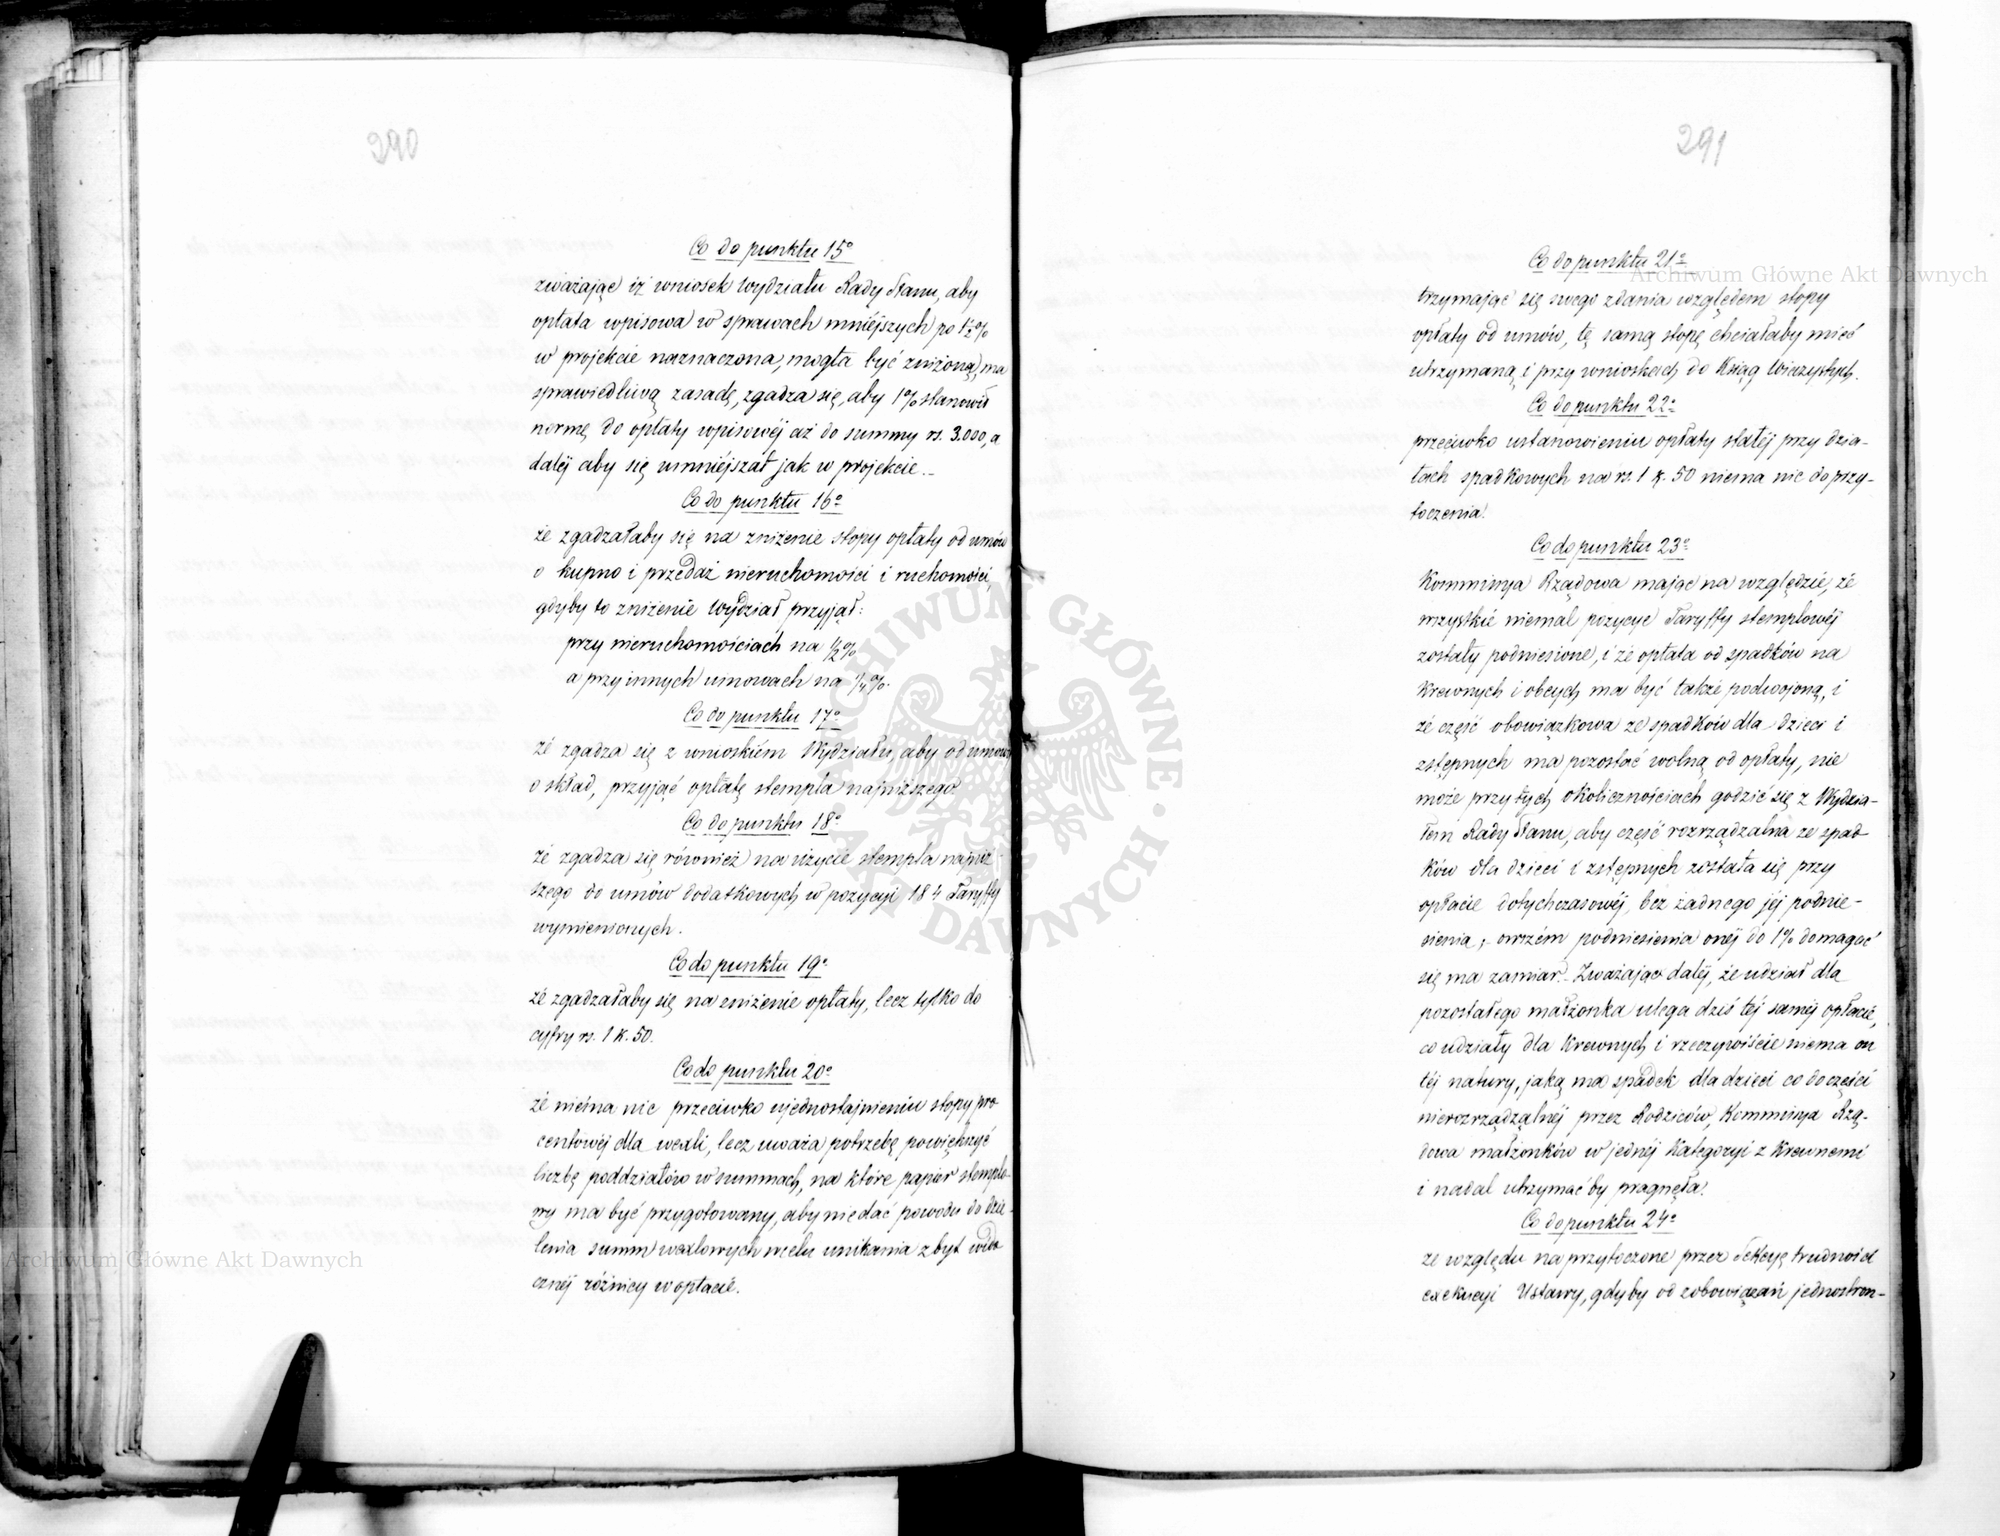 290
Co do punktu 15º
zważając iż wniosek Wydziału Rady Stanu, aby
opłata wpisowa w sprawach mniejszych po 1½%
w projekcie naznaczona, mogła być zniżoną, ma
sprawiedliwą zasadę, zgadza się, aby 1% stanowił
normę do opłaty wpisowéj aż do summy rs. 3.000, a
daléj aby się umniéjszał jak w projekcie.-
Co do punktu 16º
że zgadzałaby się na zniżenie stopy opłaty od umów
o kupno i przedaż nieruchomości i ruchomości,
gdyby to zniżenie Wydział przyjął:
przy nieruchomościach na ½%
a przy innych umowach na ¼%.
Co do punktu 17º
że zgadza się z wnioskiem Wydziału, aby od umowy
o skład, przyjąć opłatę stempla najniższego
Co do punktu 18º
że zgadza się również na użycie stempla najniż-
szego do umów dodatkowych w pozycyi 184 Taryffy
wymienionych.
Co do punktu 19º
że zgadzałaby się na zniżenie opłaty, lecz tylko do
cyfry rs. 1 k. 50.
Co do punktu 20º
że niema nic przeciwko ujednostajnieniu stopy pro
centowéj dla wexli, lecz uważa potrzebę powiększyć
liczbę poddziałów w summach, na które papier stemplo-
wy ma być przygotowany, aby nie dać powodu do dzie-
lenia summ wexlowych w celu unikania zbyt wido
cznéj różnicy w opłacie.
291
Co do punktu 21º
trzymając się swego zdania względem stopy
opłaty od umów, tę samą stopę chciałaby mieć
utrzymaną i przy wnioskach do Ksiąg Wieczystych.
Co do punktu 22º
przeciwko ustanowieniu opłaty stałéj przy dzia-
łach spadkowych na rs. 1 k. 50 niema nic do przy-
toczenia.
Co do punktu 23º
Kommissya Rządowa mając na względzie, że
wszystkie niemal pozycye Taryffy stemplowéj
zostały podniesione, i że opłata od spadków na
Krewnych i obcych ma być także podwojoną, i
że część obowiązkowa ze spadków dla dzieci i
zstępnych ma pozostać wolną od opłaty, nie
może przy tych okolicznościach godzić się z Wydzia-
łem Rady Stanu, aby część rozrządzalna ze spad
ków dla dzieci i zstępnych została się przy
opłacie dotychczasowéj, bez żadnego jéj podnie-
sienia,- owszem podniesienia onéj do 1% domagać
się ma zamiar.- Zważając daléj, że udział dla
pozostałego małżonka ulega dziś téj saméj opłacie,
co udziały dla Krewnych i rzeczywiście niema on
téj natury, jaką ma spadek dla dzieci co do części
nierozrządzalnéj przez Rodziców, Kommissya Rzą-
dowa małżonków w jednéj Kategoryi z Krewnemi
i nadal utrzymać by pragnęła.
Co do punktu 24º
ze względu na przytoczone przez Sekcyę trudności
exekucyi Ustawy, gdyby od zobowiązań jednostron-
Archiwum Główne Akt Dawnych
Archiwum Główne Akt Dawnych
ARCHIWUM GŁÓWNE · AKT DAWNYCH ·